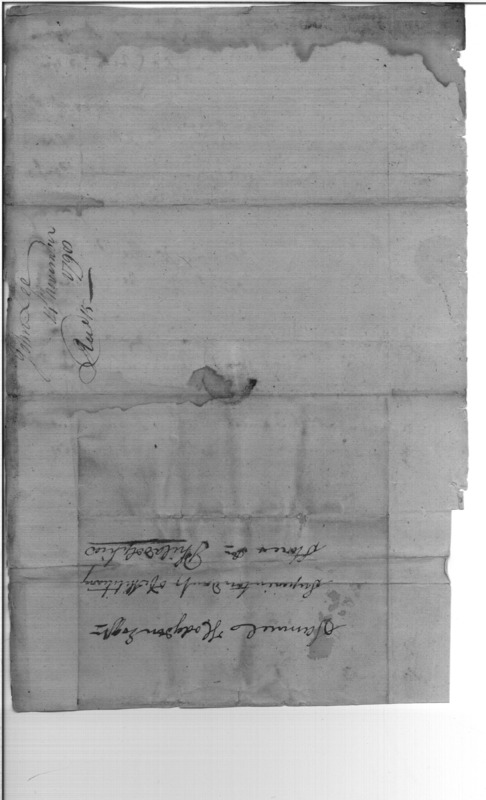 Samuel Hodgdon Esqr
Superintendant of Military
Stores &c
Philadelphia
14 November
1790